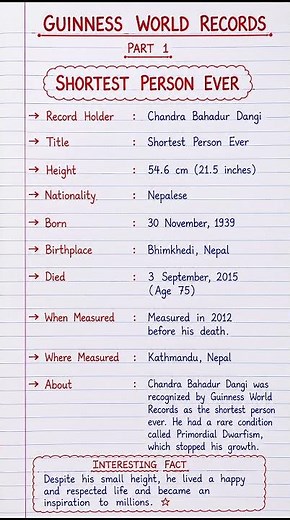 GUINNESS WORLD RECORDS
PART 1
SHORTEST PERSON EVER
→ Record Holder : Chandra Bahadur Dangi
→ Title : Shortest Person Ever
→ Height : 54.6 cm (21.5 inches)
→ Nationality : Nepalese
→ Born : 30 November, 1939
→ Birthplace : Bhimkhedi, Nepal
→ Died : 3 September, 2015
(Age 75)
→ When Measured : Measured in 2012
before his death.
→ Where Measured : Kathmandu, Nepal
→ About : Chandra Bahadur Dangi was
recognized by Guinness World
Records as the shortest person
ever. He had a rare condition
called Primordial Dwarfism,
which stopped his growth.
INTERESTING FACT
Despite his small height, he lived a happy
and respected life and became an
inspiration to millions. ☆